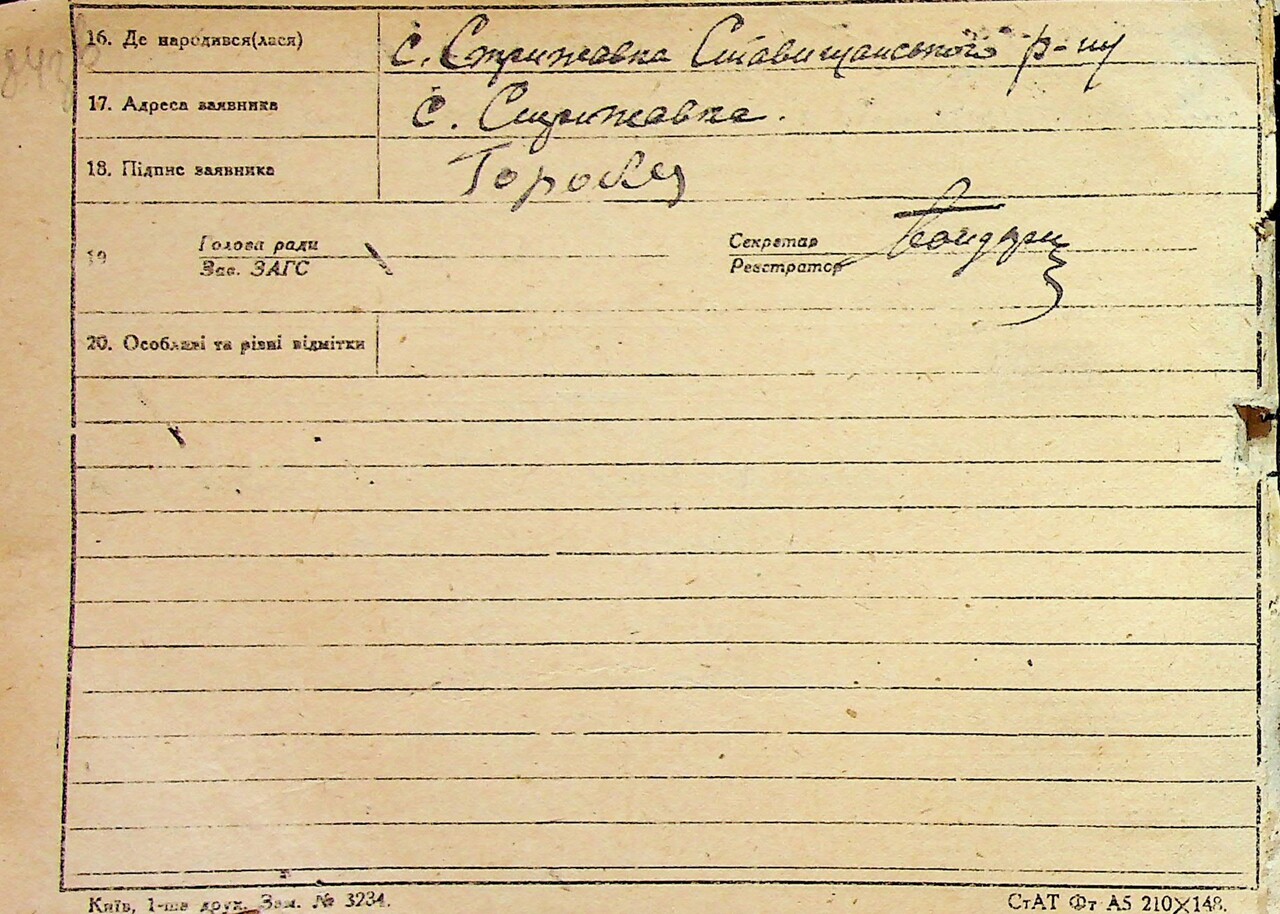 16. Де народився(лася) с. Стрижавка Ставищанського р-ну
17. Адреса заявника с. Стрижавка.
18. Підпис заявника
19 Голова ради Секретар
Зав. ЗАГС Реєстратор
20. Особливі та різні відмітки
Київ, 1-ша друк. Зам. № 3234. СтАТ Фт А5 210×148.